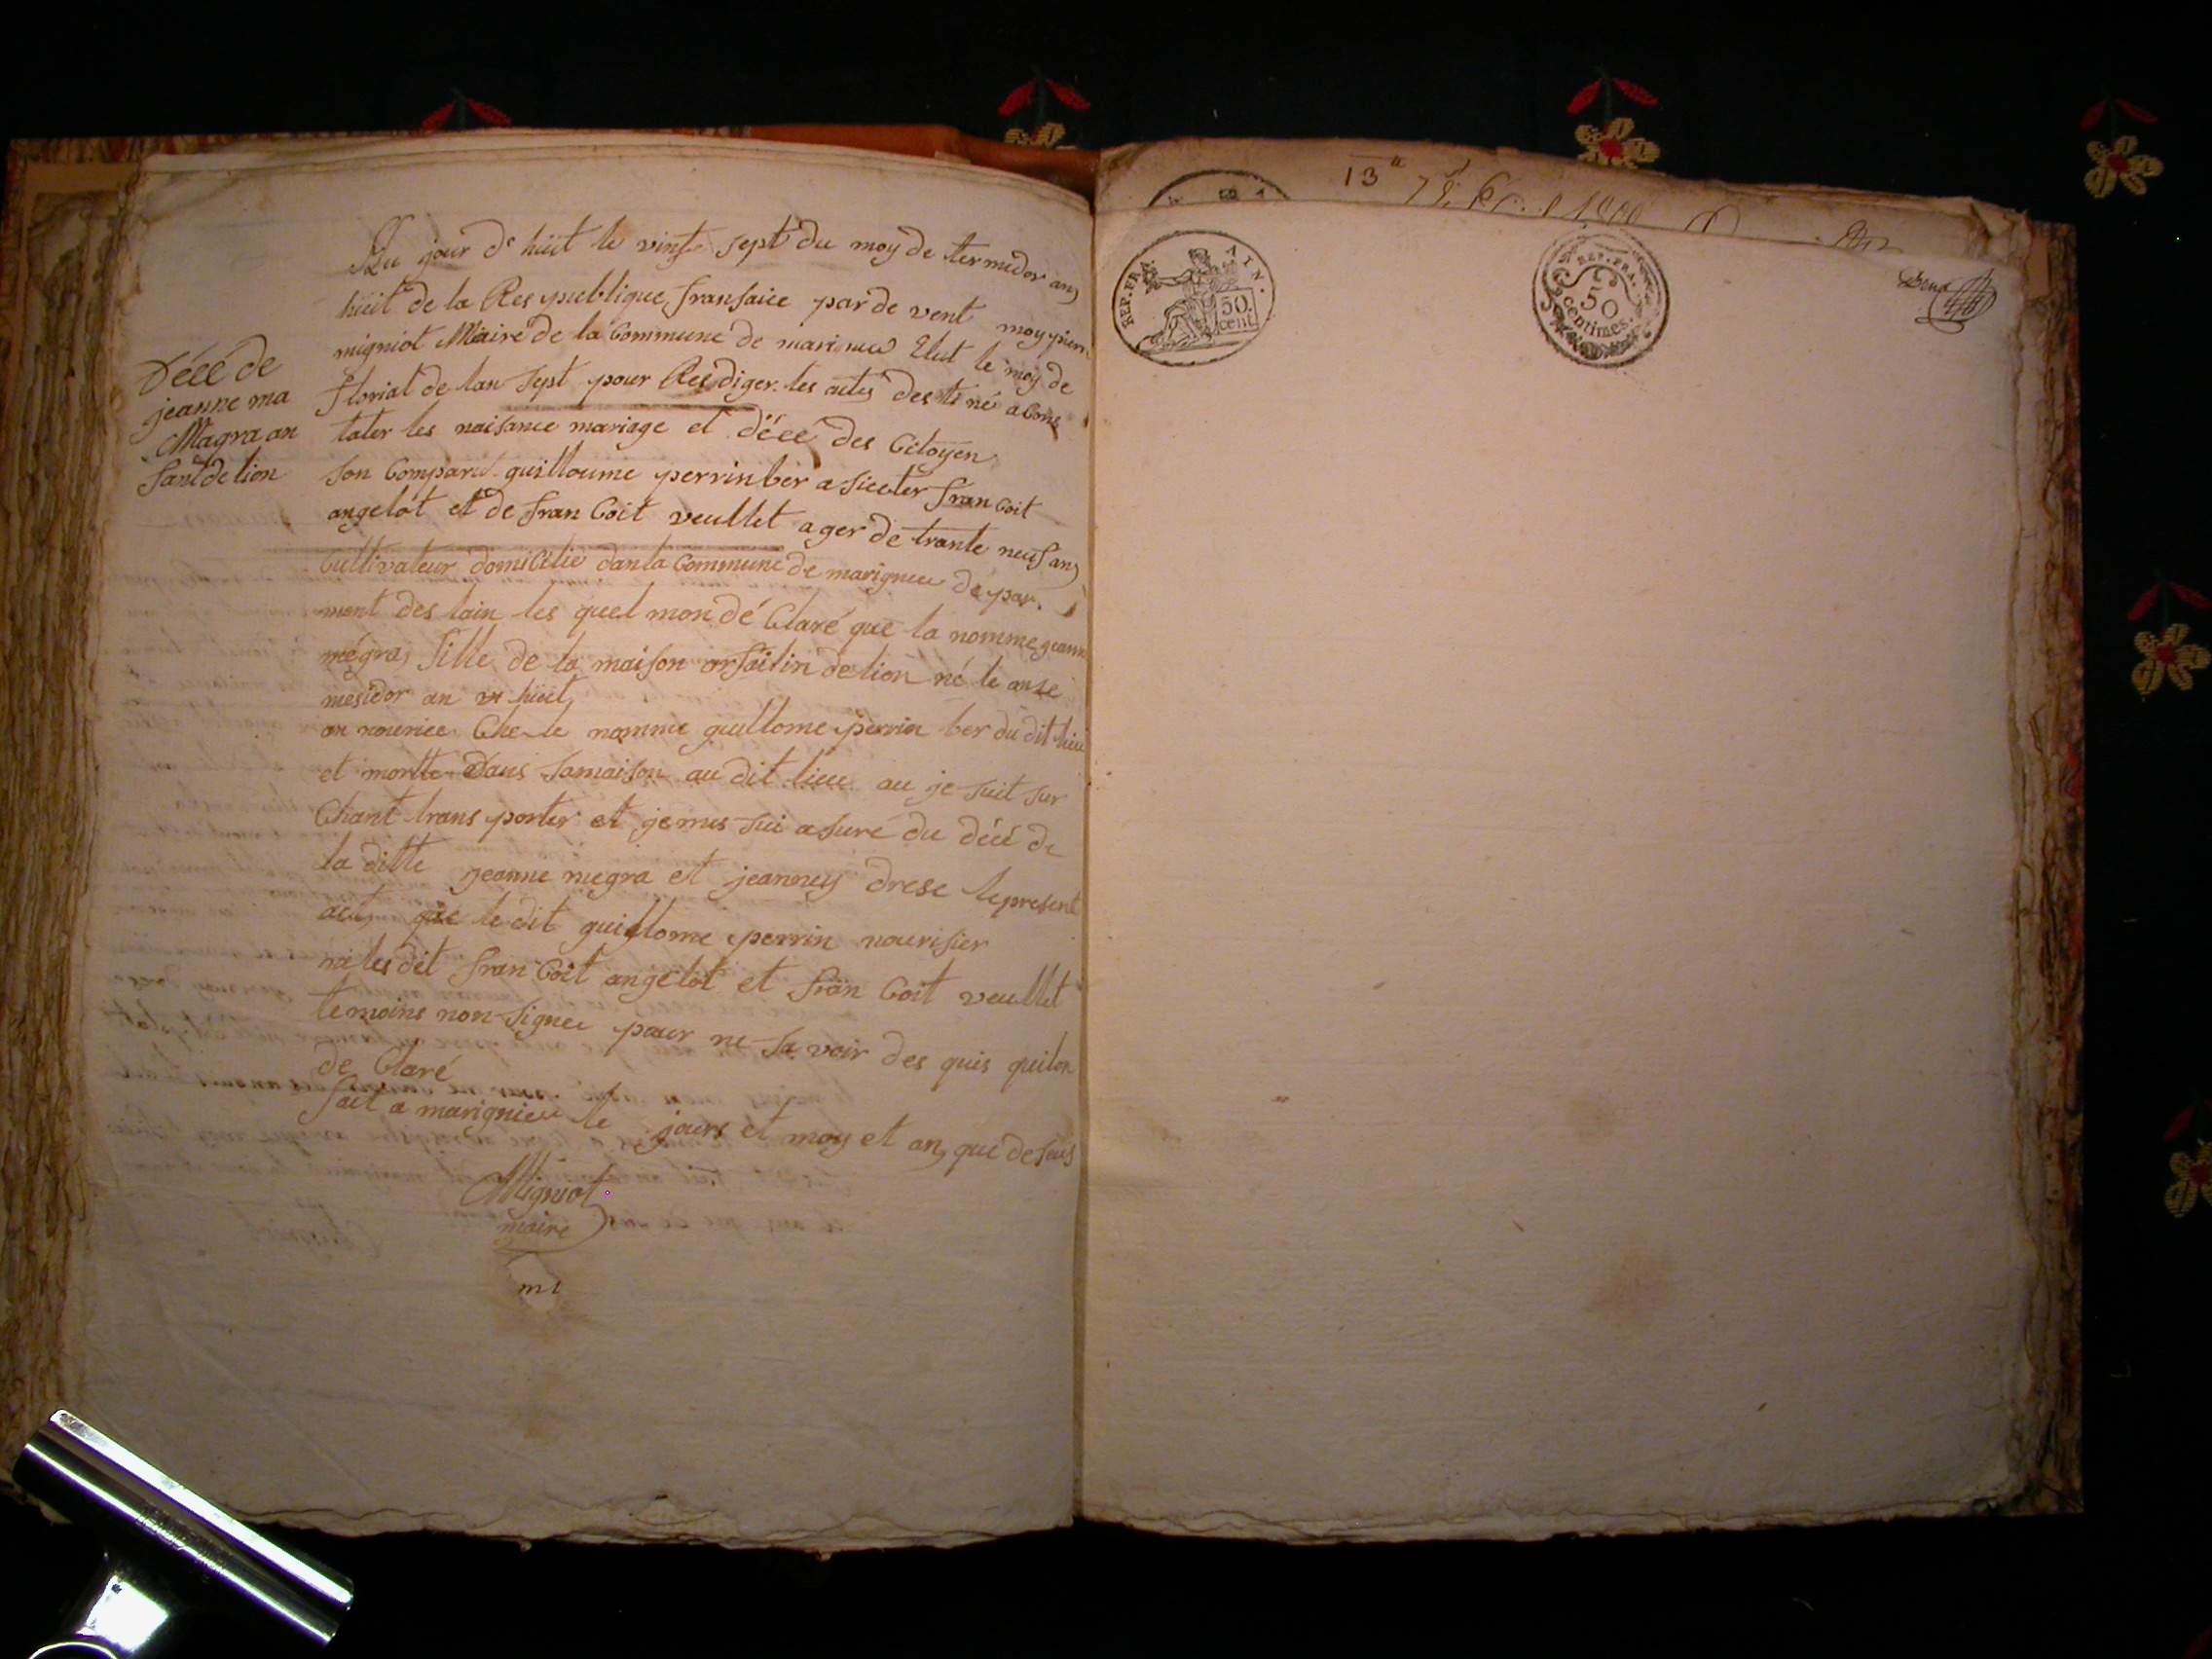 Du jour d huit le vingt sept du moy de termedor an
huit de la Res publique fransaice par de vent moy pierre
migniot Maire de la Commune de marigneu Elut le moy de
florial de lan sept pour Resdiger les actes destiné a Cons
tater les naisance mariage et décé des Citoyen
son Comparu guilloume perrin ber a sicter fran Coit
angelot et de fran Coit veullet ager de trante neuf an
Cultivateur domiCilie dan la Commune de marigneu de par.
ment des lain les quel mon dé Claré que la nomme jeanne
mégra fille de la maison orfailin de lion né le onze
mesidor an huit
an nourice Che le nomme guillome perrin ber du dit lieu
et morte Dans samaison au dit lieu au je suit sur
Chant trans porter et je mes sui asuré du décé de
la ditte jeanne megra et jeanney drese le present
act que le dit guillome perrin nourisier
ni les dit fran Coit angelot et fran Coit veullet
temoins non signee pour ne sa voir des quis quilon
de Claré
fait a marignieu le jours et moy et an que de sus
Migniot
maire
Décé de
jeanne ma
Magra an
fant de lion
13
REP. FRA.
AIN.
50.
cent.
REP. FRA.
50
centimes.